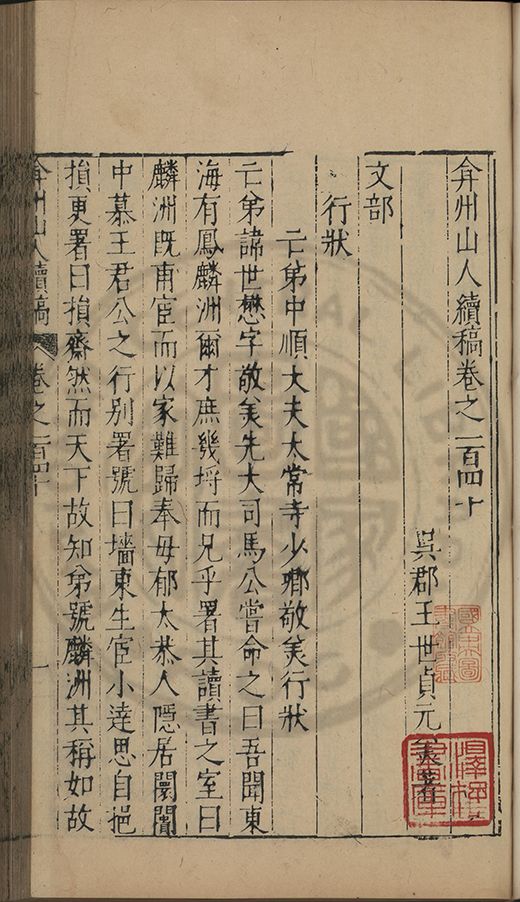 弇州山人續稿卷之一百四十
吳郡王世貞元美著
文部
行狀
亡弟中順大夫太常寺少卿敬美行狀
亡弟諱世懋字敬美先大司馬公嘗命之曰吾聞東
海有鳳麟洲爾才庶幾埒而兄乎署其讀書之室曰
麟洲既甫宦而以家難歸奉母郁太恭人隱居闤闠
中慕王君公之行別署號曰墻東生宦小達思自挹
損更署曰損齋然而天下故知弟號麟洲其稱如故
弇州山人續稿 卷之一百四十 一